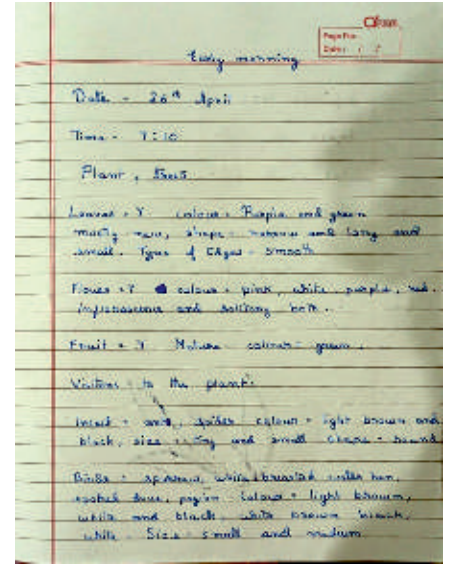 Page No.
Date: / /
Early morning
Date - 26th April
Time - 7:10
Plant, Trees
Leaves - Y colour - Purple and green
mostly new, shape - narrow and long and
small. Types of Edges - smooth
Flower - Y colour - pink, white, purple, red.
inflorescence and solitary both.
Fruit - Y Mature colour - green.
Visitors to the plant:
insect - ant, spider colour - light brown and
black, size - tiny and small shape - round
Birds - sparrow, white breasted water hen,
spotted dove, pigeon colour - light brown,
white and black, white brown
white Size - small and medium